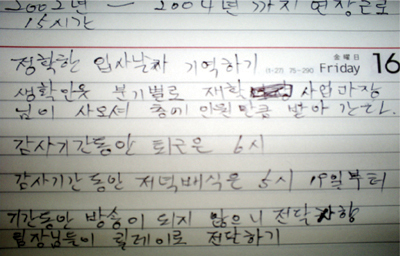 2002년 - 2004년 까지 연장근로
15시간
金曜日
(1-27) 75-290 Friday 16
정확한 입사날자 기억하기
생학만못 분기별로 재학 사업과장
님이 사오셔 층에 안원만큼 받아 간다.
감사기간동안 퇴근은 6시
감사기간동안 저녁배식은 5시 19일부터
기간동안 방송이 되지 않으니 전달사항
팀장님들이 릴레이로 전달하기